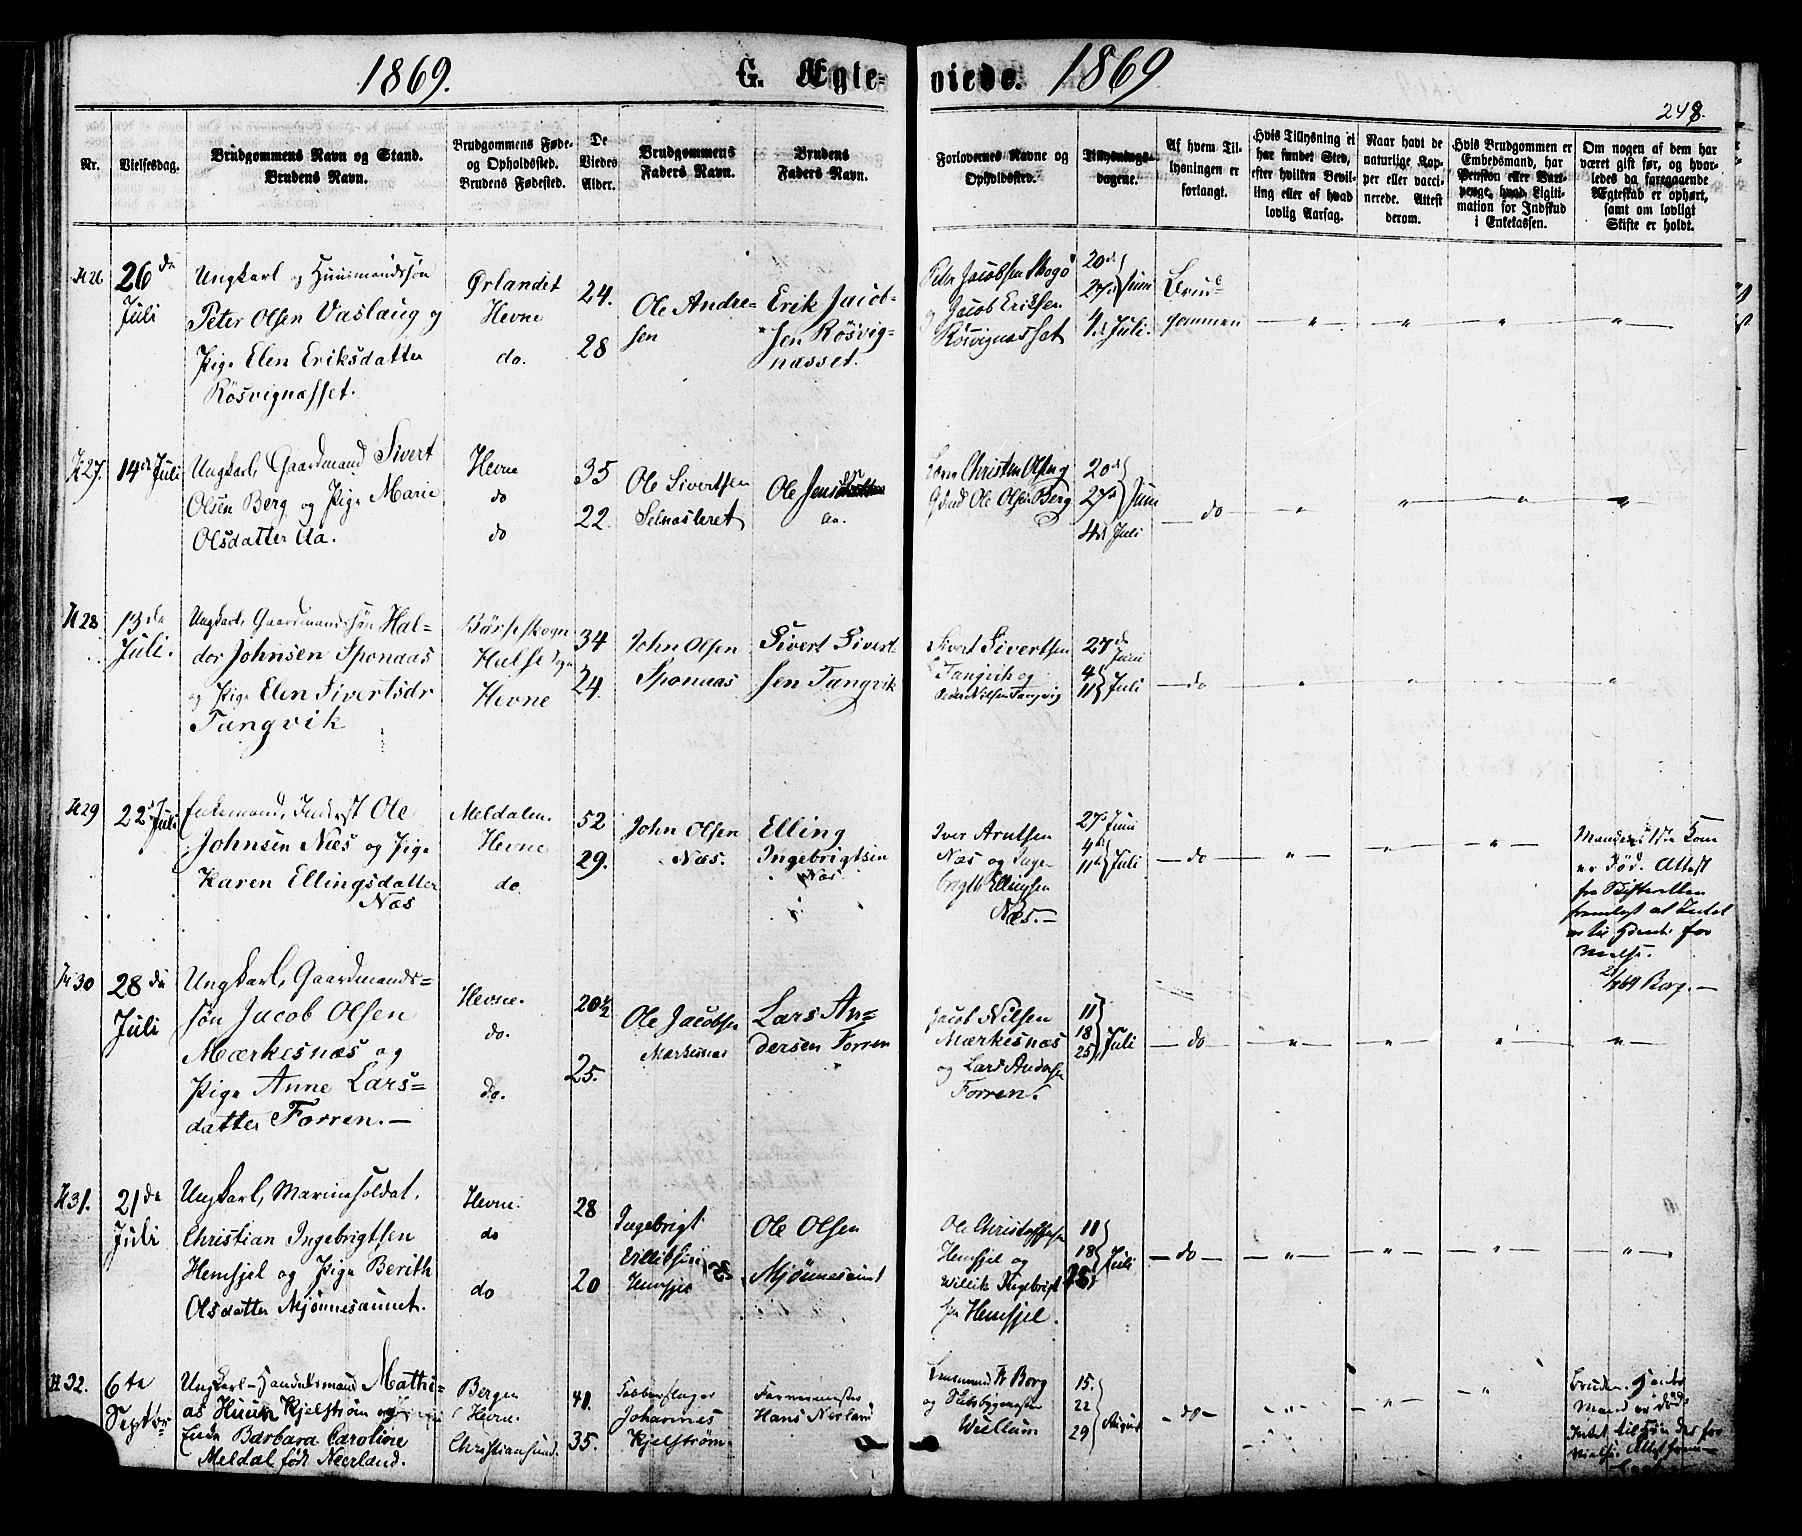 1869.
G. Ægte=
viede. 1869
248.
Nr.
Vielsesdag.
Brudgommens Navn og Stand.
Brudens Navn.
Brudgommens Føde-
og Opholdssted.
Brudens Fødested.
De
Viedes
Alder.
Brudgommens
Faders Navn.
Brudens
Faders Navn.
Forlovernes Navne og
Opholdssted.
Tillysnings-
dagene.
Af hvem Til-
lysningen er
forlangt.
Hvis Tillysning ei
har fundet Sted,
efter hvilken Bevil-
ling eller af hvad
lovlig Aarsag.
Naar havt de
naturlige Kop-
per eller vacci-
nerede. Attest
derom.
Hvis Brudgommen er
Embedsmand, har
Pension eller Vart-
penge, hvad Ligiti-
mation for Indskud
i Enkekassen.
Om nogen af dem har
været gift før, og hvor-
ledes da foregaaende
Ægteskab er ophørt,
samt om lovligt
Skifte er holdt.
N 26
26de
Juli
Ungkarl og Huusmandssøn
Peter Olsen Vaslaug og
Pige Elen Eriksdatter
Rösvignæsset.
Ørlandet
Hevne
do.
24.
28
Ole Andre=
sen
Erik Jacob-
sen Rösvig-
næsset.
Peter Jacobsen Skogö
og Jacob Eriksen
Rösvignæsset
20de
27de } Juni
4de Juli.
Brud-
gommen
N 27.
14de Juli
Ungkarl, Gaardmand Sivert
Olsen Berg og Pige Marie
Olsdatter Aa.
Hevne
do
do
35
22
Ole Sivertsen
Selnæsleret
Ole Jensen
Aa.
Christen Olsen og
Gbrd Ole Olsen Berg
20de
27de } Juni
4de Juli
do
N 28
13de
Juli.
Ungkarl, Gaardmandssøn Hal-
dor Johnsen Sponaas
og Pige Elen Sivertsdr
Tangvik
Börseskogn
Halse Sogn
Hevne
34
24.
John Olsen
Sponaas
Sivert Sivert
sen Tangvik
Sivert Sivertsen
Tangvik og
Nilsen Tangvig
27de Juni
4
11 } Juli
do
N 29
22de Juli
Enkemand, Inderst Ole
Johnsen Næs og Pige
Karen Ellingsdatter
Næs
Meldalen.
Hevne
do
52
29.
John Olsen
Næs.
Elling
Ingebrigtsen
Næs
Iver Arntsen
Næs og Inge-
brigt Ellingsen
Næs.—
27de Juni
4de
11te } Juli
do
Mandens 1ste Kone
er död. Attest
fra Skifteretten
fremlagt at Intet
er til Hinder for
Vielse.
Borg.—
N 30
28de
Juli
Ungkarl, Gaardmands=
søn Jacob Olsen
Mærkesnæs og
Pige Anne Lars=
datter Forren.—
Hevne.
do.
do.
20 1/2
25.
Ole Jacobsen
Mærkesnæs
Lars An=
dersen Forren
Jacob Nilsen
Mærkesnæs
og Lars Andersen
Forren.
11
18
25 } Juli
do
N 31.
21de
Juli
Ungkarl, Marinesoldat,
Christian Ingebrigtsen
Hemsjel og Pige Berith
Olsdatter Mjönnesaunet.
Hevne.
do
do
28
20
Ingebrigt
Villiksen
Hemsjel
Ole Olsen
Mjönnesaunet
Ole Christoffersen
Hemsjel og
Willik Ingebrigt
sen Hemsjel.
11
18
25 } Juli
do
N 32.
6te
Septbr
Ungkarl Handelsmand Mathi-
as Huun Kjelstrøm og
Enke Barbara Caroline
Meldal født Neerland.
Bergen
Hevne.
Christiansund.
41.
35.
Johannes
Kjelstrøm
Farvermester
Hans Neerland
Lensmand Borg
og Skibsbygmester
Wullum
15.
22
29 } August
do
Brudens Hender
Mand er död.
Intet til Hinder for
Vielse. Attest